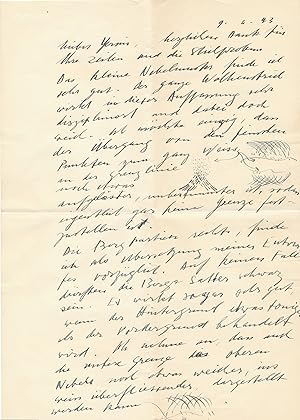 9. 6. 43
Liebes Yermi, herzlichen Dank für
Ihre Zeilen und die Stilproben
Das kleine Nebelmuster finde ich
sehr gut. Der ganze Wolkenstrich
wirkt in dieser Auffassung sehr
diszipliniert und dabei doch
weich. Ich möchte einzig, dass
der Übergang von den feinsten
Punkten zum ganz weiss
in der Grenzlinie
noch etwas
aufgelöster, unbestimmter ist, sodass
eigentlich gar keine Grenze fest-
zustellen ist.
Die Bergpartien rechts, finde
ich als Übersetzung meines
vorzüglich. Auf keinen Fall
dürften die Berge satter schwarz
sein. Es wirkt sogar sehr gut
wenn der Hintergrund etwas
als der Vordergrund behandelt
wird. Ich nehme an, dass auch
die untere Grenze des oberen
Nebels noch etwas weicher, ins
weiss überfliessender, dargestellt
werden kann